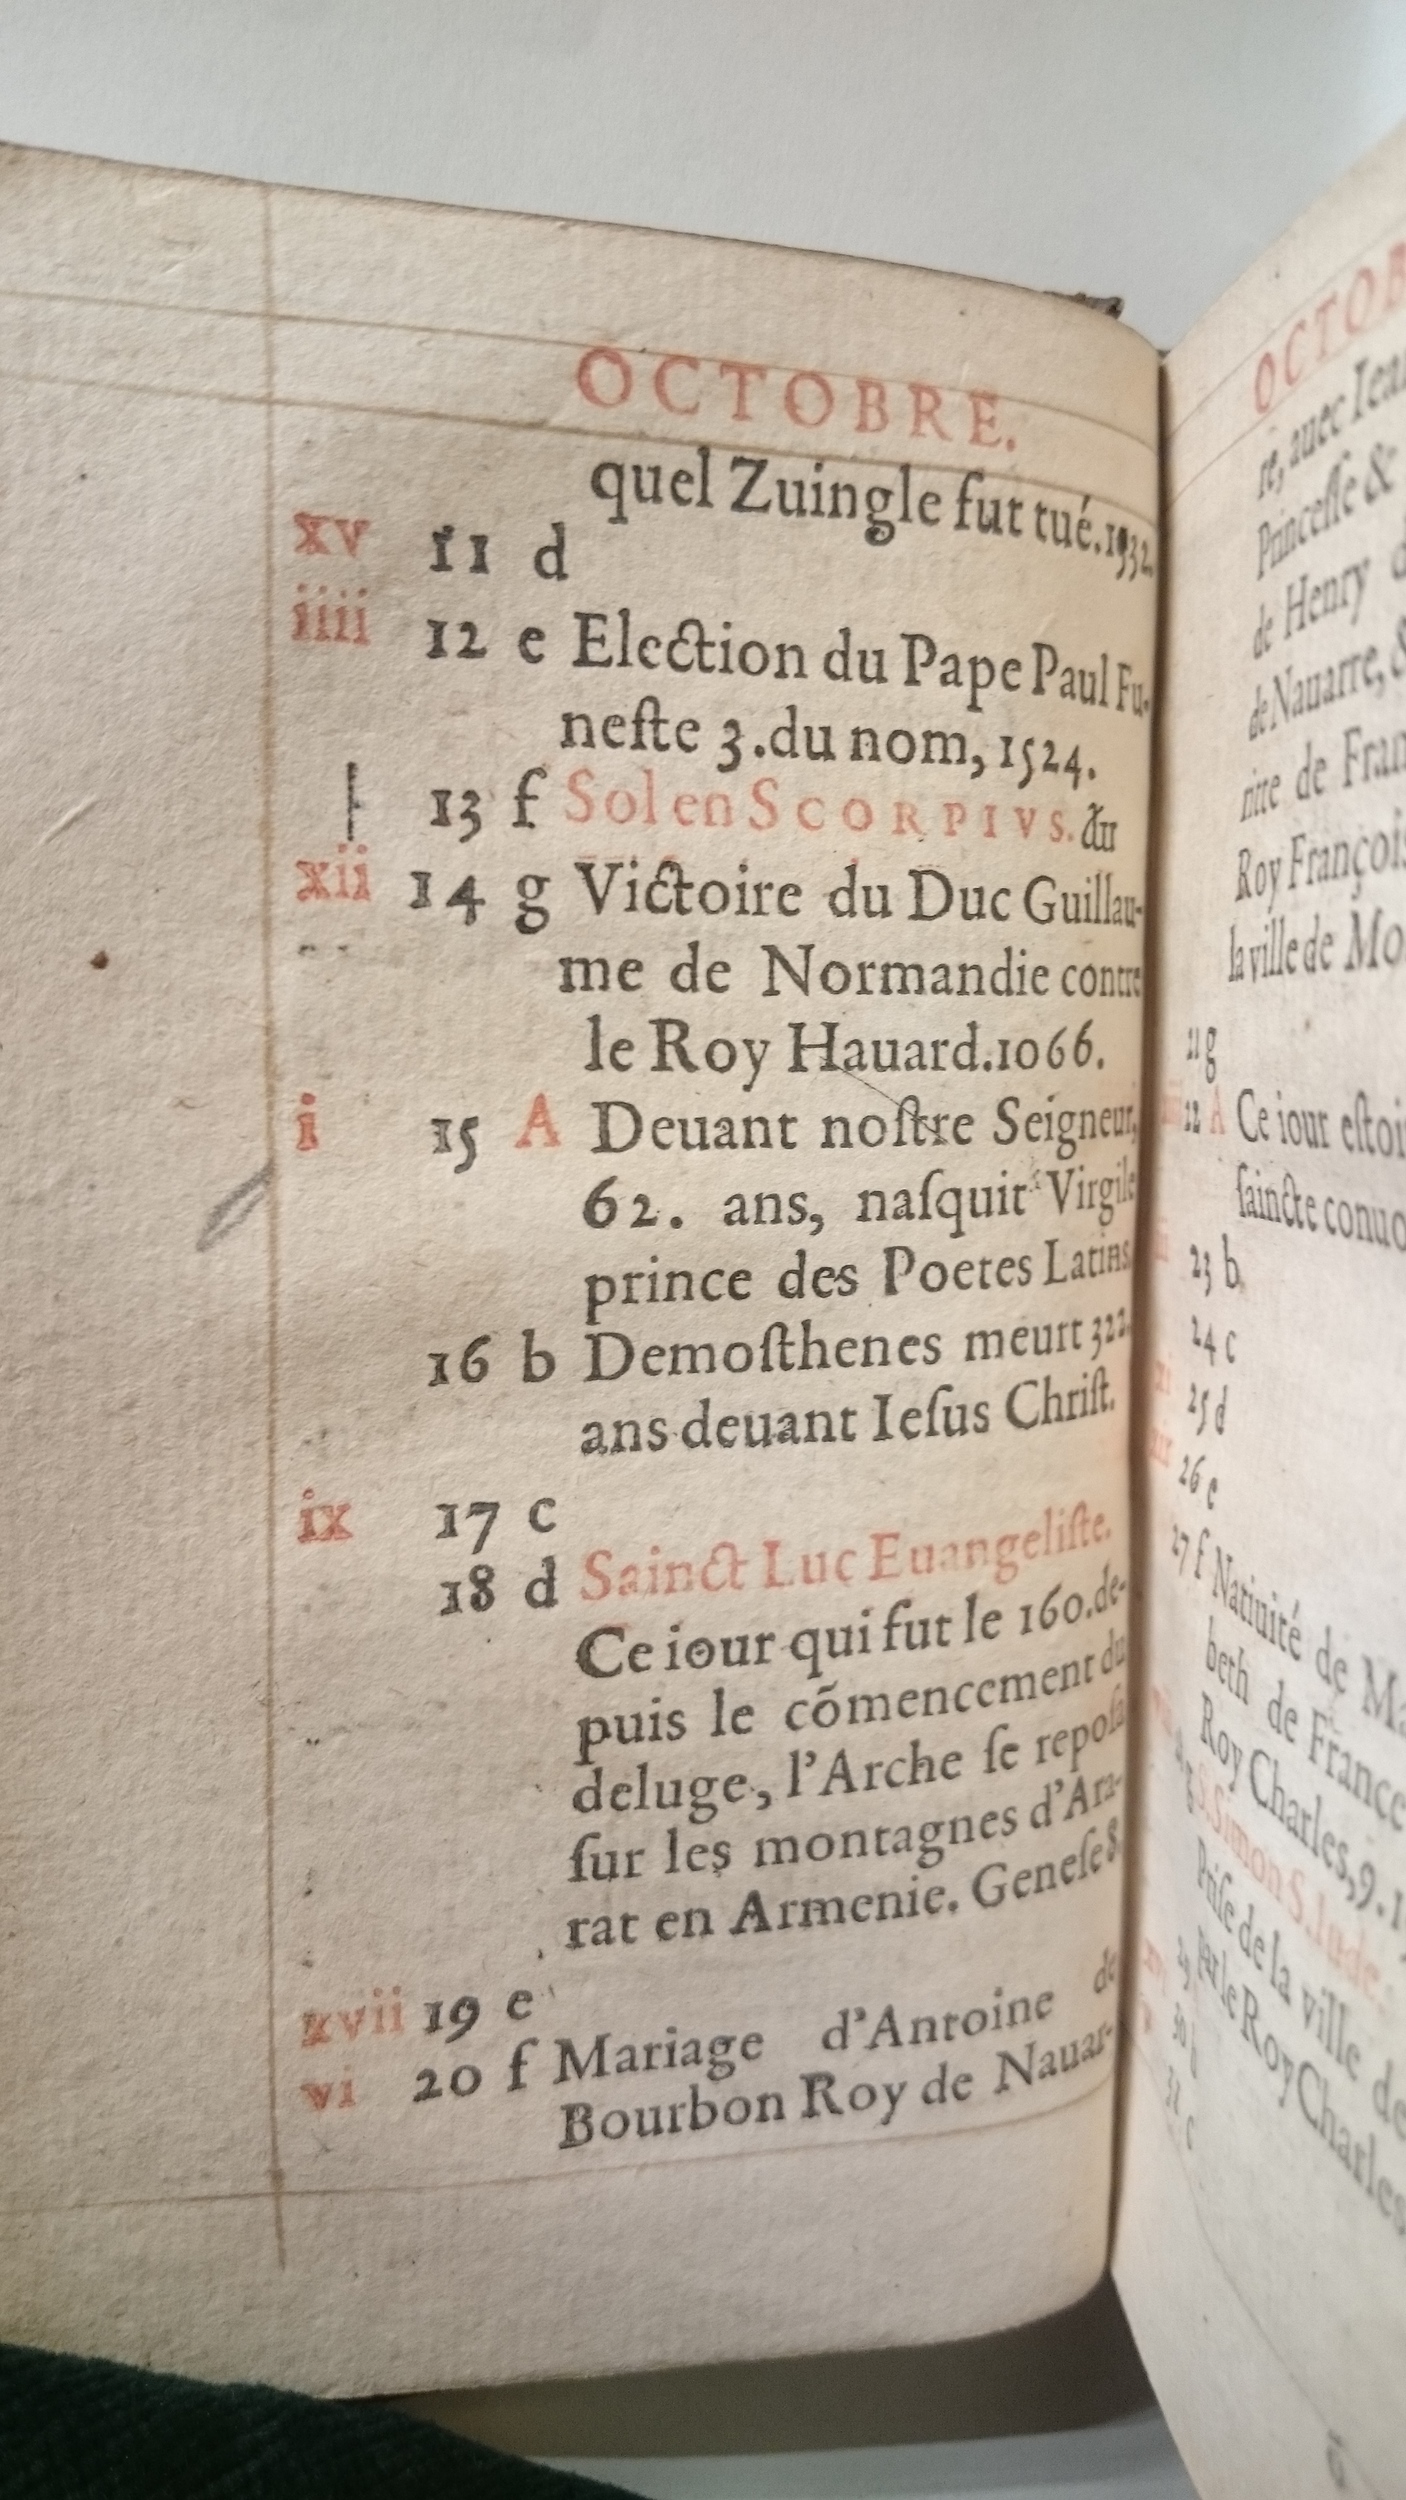 OCTOBRE.
quel Zuingle fut tué.1932.
xv 11 d
iiii 12 e Election du Pape Paul Fu-
neſte 3.du nom, 1524.
13 f Sol en SCORPIVS. du
xii 14 g Victoire du Duc Guillau-
me de Normandie contre
le Roy Hauard.1066.
i 15 A Deuant noſtre Seigneur,
62. ans, naſquit Virgile
prince des Poetes Latins.
16 b Demoſthenes meurt 322.
ans deuant Ieſus Chriſt.
ix 17 c
18 d Sainct Luc Euangeliſte.
Ce iour qui fut le 160.de-
puis le cõmencement du
deluge, l'Arche ſe repoſa
ſur les montagnes d'Ara-
rat en Armenie. Geneſe 8.
xvii 19 e
vi 20 f Mariage d'Antoine de
Bourbon Roy de Nauar-
OCTOB
re, auec Iea
Princeſſe &
de Henry
de Nauarre, &
de Fran
Roy François
la ville de Mo
21 g
22 A Ce iour eſtoi
ſaincte conuo
23 b
24 c
25 d
26 e
27 f Natiuité de Ma
beth de France
Roy Charles,9.
S.Simon S.Iude.
Priſe de la ville de
par le Roy Charles
30 b
31 c